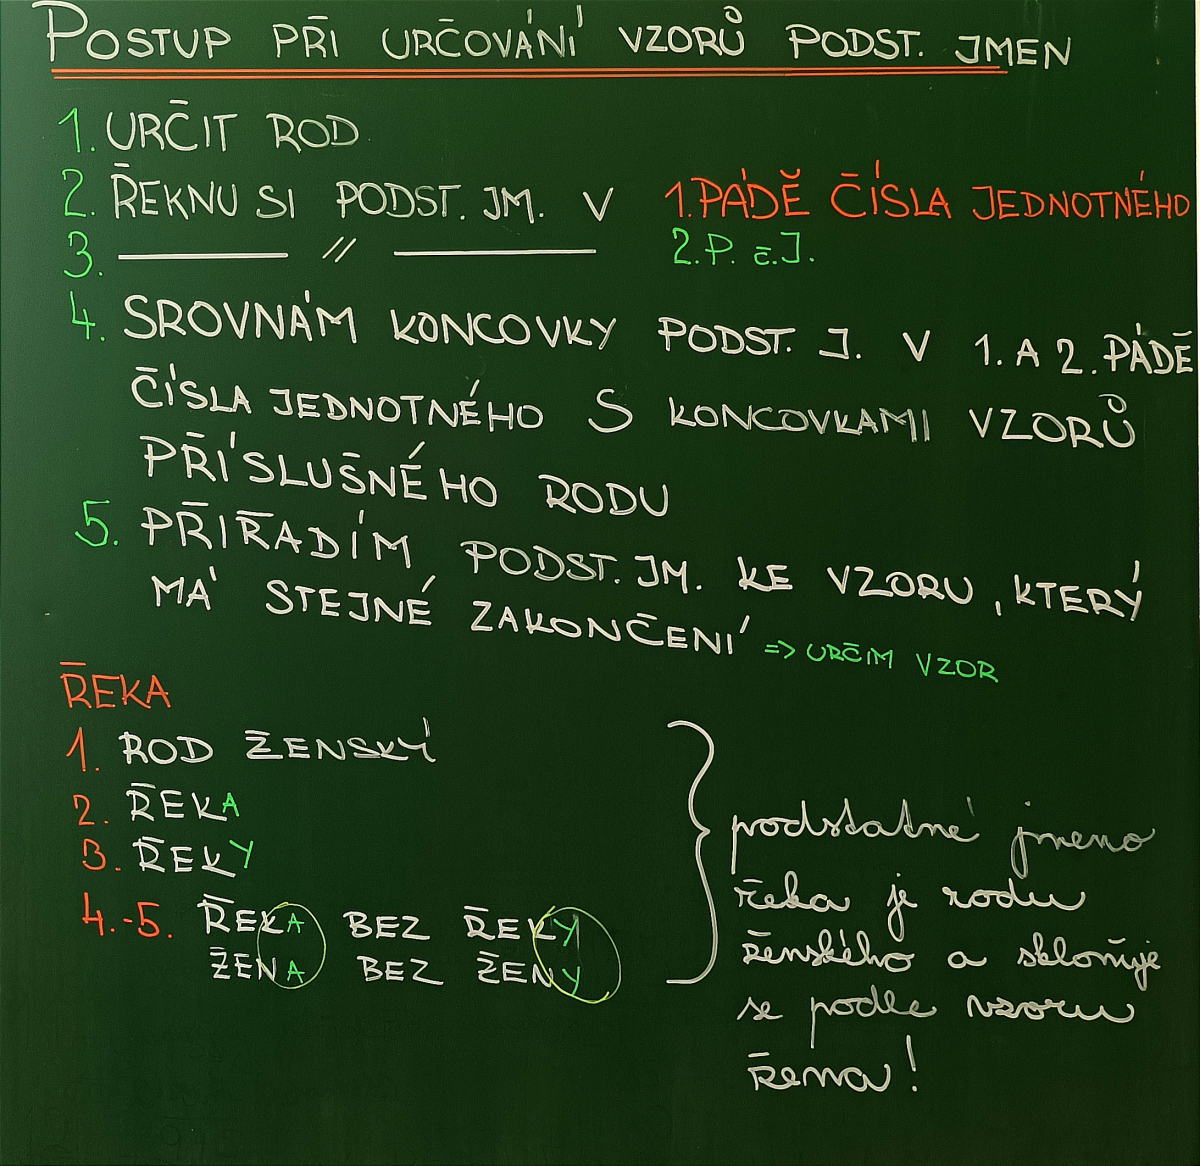 POSTUP PŘI URČOVÁNÍ VZORŮ PODST. JMEN
1. URČIT ROD
2. ŘEKNU SI PODST. JM. V 1. PÁDĚ ČÍSLA JEDNOTNÉHO
3. ——— // ——— 2. P. č. J.
4. SROVNÁM KONCOVKY PODST. J. V 1. A 2. PÁDĚ
ČÍSLA JEDNOTNÉHO S KONCOVKAMI VZORŮ
PŘÍSLUŠNÉHO RODU
5. PŘIŘADÍM PODST. JM. KE VZORU, KTERÝ
MÁ STEJNÉ ZAKONČENÍ => URČÍM VZOR
ŘEKA
1. ROD ŽENSKÝ
2. ŘEKA
3. ŘEKY
4.-5. ŘEKA BEZ ŘEKY
ŽENA BEZ ŽENY
podstatné jméno
řeka je rodu
ženského a skloňuje
se podle vzoru
žena!